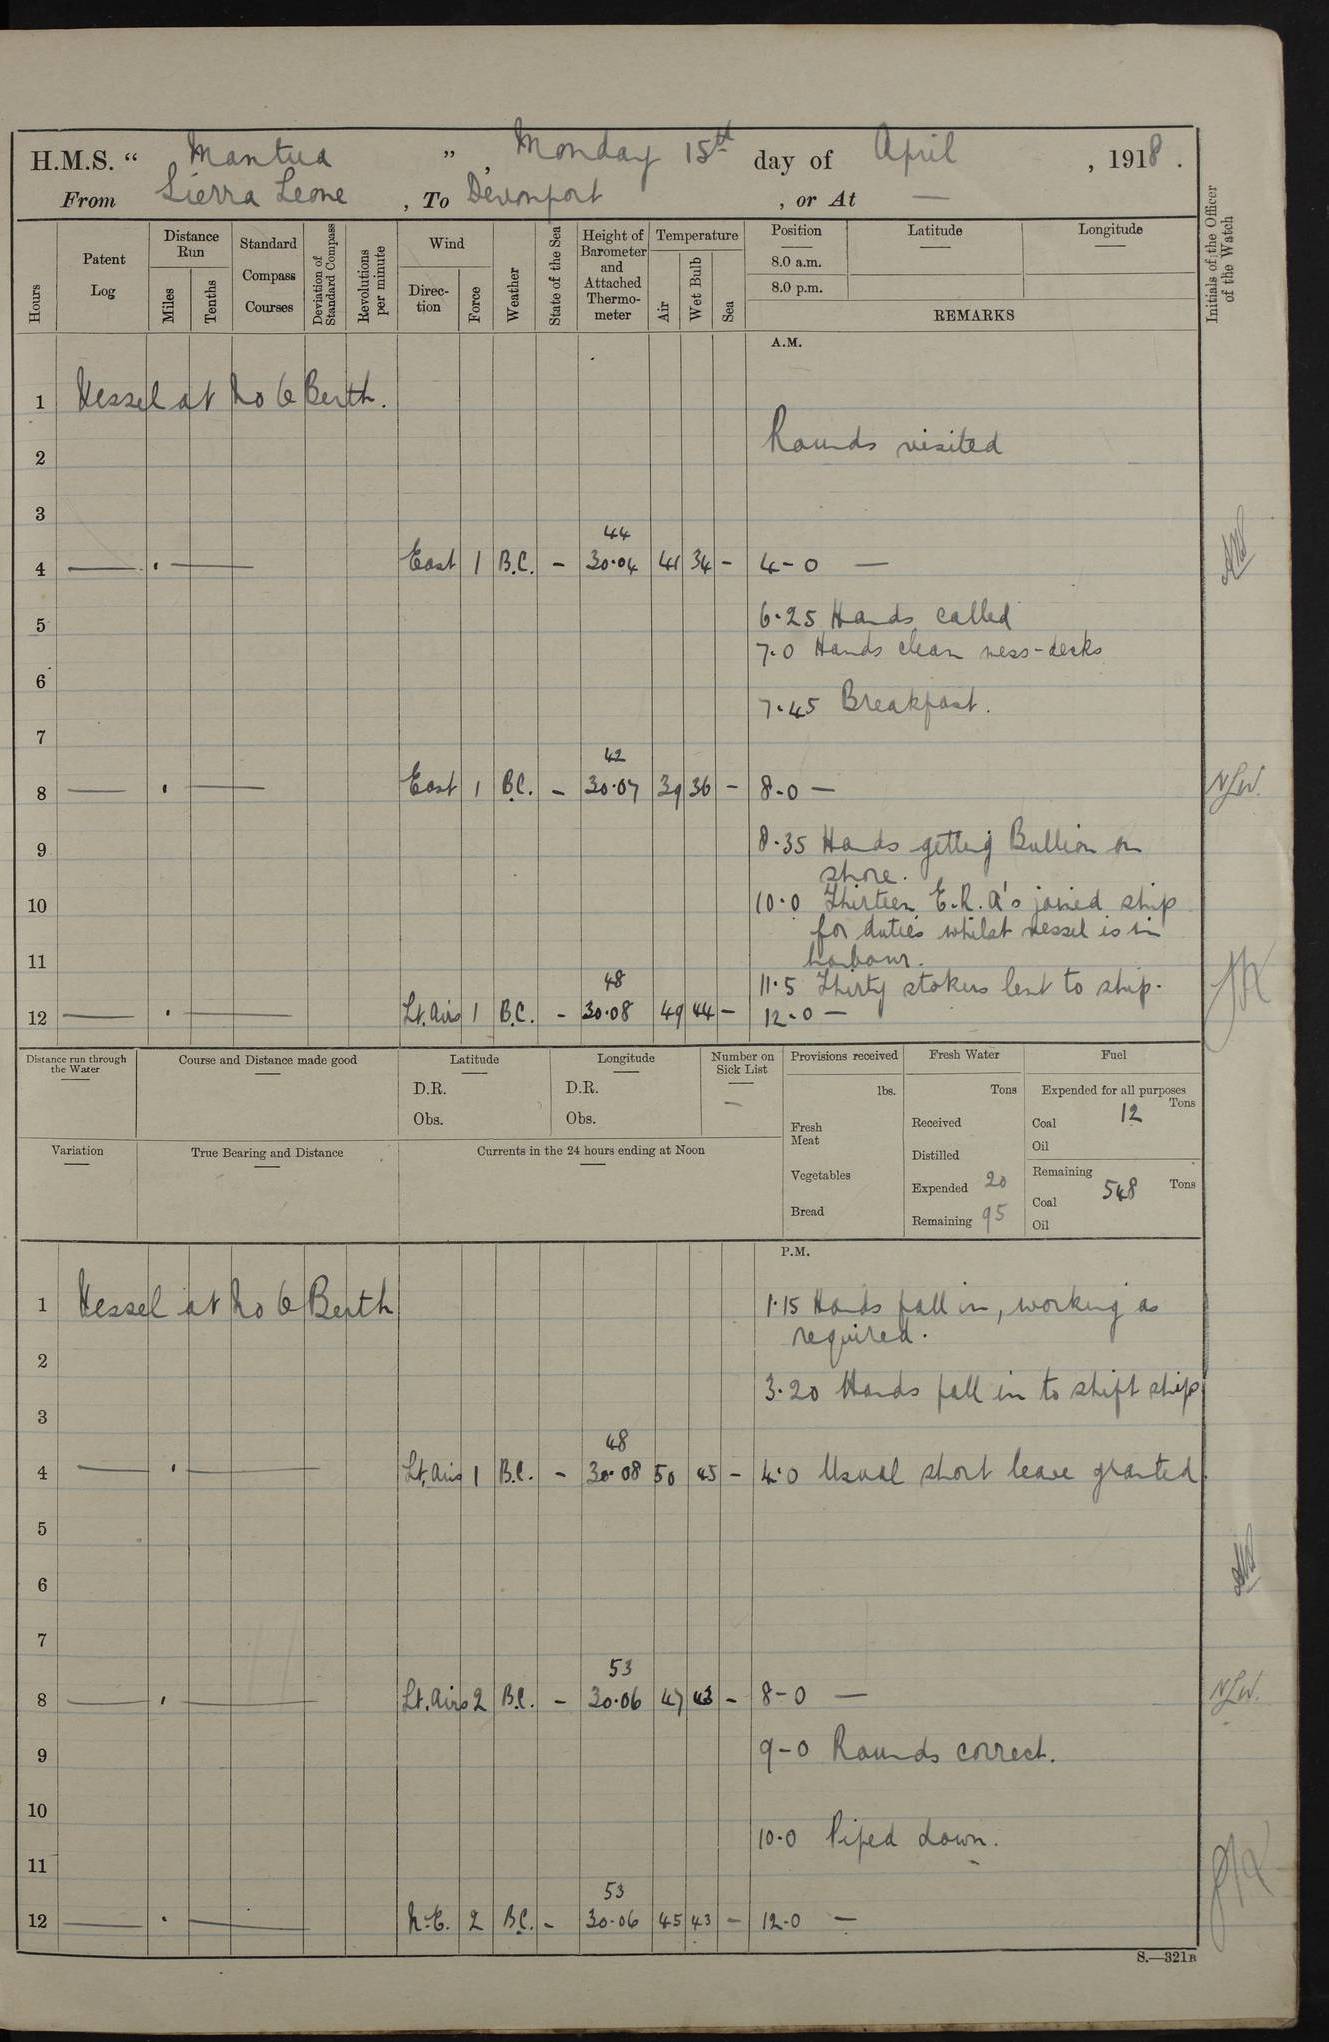 H.M.S. “ Mantua ” , Monday 15th day of April , 1918 .
From Sierra Leone , To Devonport , or At —
Hours
Patent Log
Distance Run
Miles
Tenths
Standard Compass Courses
Deviation of Standard Compass
Revolutions per minute
Wind
Direction
Force
Weather
State of the Sea
Height of Barometer and Attached Thermometer
Temperature
Air
Wet Bulb
Sea
Position
8.0 a.m.
8.0 p.m.
Latitude
Longitude
REMARKS
Initials of the Officer of the Watch
A.M.
1 Vessel at No 6 Berth.
Rounds visited
2
3
44
4 — . — East 1 B.C. - 30.04 41 34 - 4-0 —
5 6.25 Hands called
7.0 Hands clean mess-decks
6
7.45 Breakfast.
7
42
8 — . — East 1 B.C. - 30.07 39 36 - 8-0 — NLW.
9 8.35 Hands getting Bullion on
shore.
10 10.0 Thirteen E.R.A's joined ship
for duties whilst vessel is in
11 harbour.
48
11.5 Thirty stokers lent to ship.
12 — . — Lt. Airs 1 B.C. - 30.08 49 44 - 12-0 —
Distance run through the Water
Course and Distance made good
Latitude
D.R.
Obs.
Longitude
D.R.
Obs.
Number on Sick List
—
Provisions received
lbs.
Fresh Meat
Vegetables
Bread
Fresh Water
Tons
Received
Distilled
Expended 20
Remaining 95
Fuel
Expended for all purposes
Tons
Coal 12
Oil
Remaining
Coal 548 Tons
Oil
Variation
True Bearing and Distance
Currents in the 24 hours ending at Noon
P.M.
1 Vessel at No 6 Berth 1.15 Hands fall in, working as
required.
2
3.20 Hands fall in to shift ship
3
48
4 — . — Lt. Airs 1 B.C. - 30.08 50 45 - 4.0 Usual short leave granted.
5
6
7
53
8 — . — Lt. Airs 2 B.C. - 30.06 47 43 - 8-0 — NLW.
9 9-0 Rounds correct.
10
10.0 Piped down.
11
53
12 — . — N.E. 2 B.C. - 30.06 45 43 - 12-0 —
S.—321B